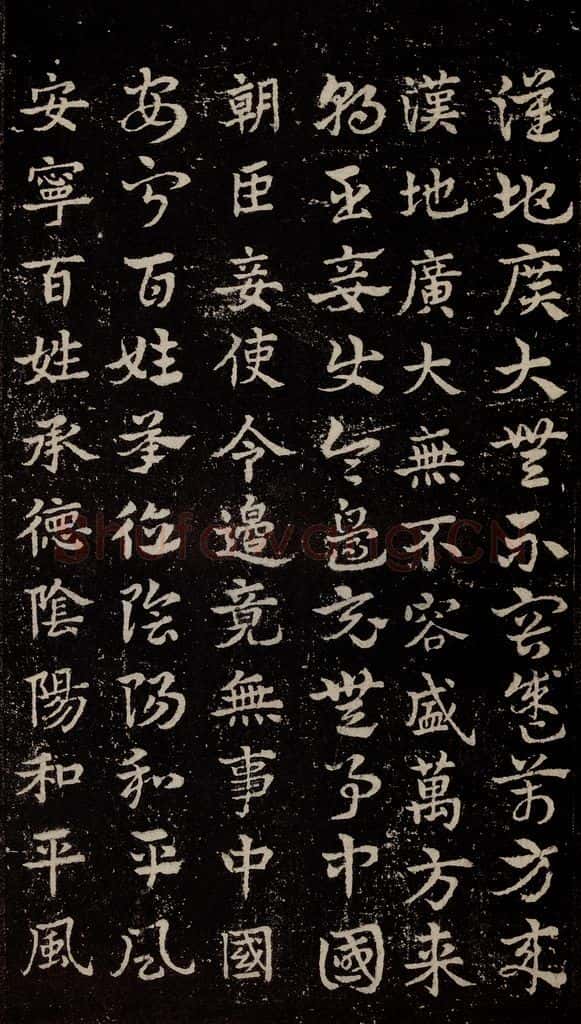 漢地廣大無不容盛萬方来
漢地廣大無不容盛萬方来
朝臣妾使令邊竟無事中國
朝臣妾使令邊竟無事中國
安寧百姓承德陰陽和平風
安寧百姓承德陰陽和平風
shufawang.CN